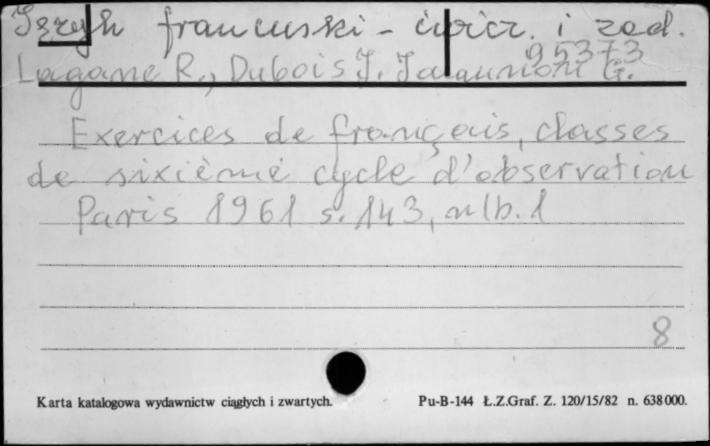 Język francuski - ćwicz. i zad.
95373
Lagane R., Dubois J. G.
Exercices de français, classes
de sixième cycle d'observation
Paris 1961 s. 143, nlb. 1
8
Karta katalogowa wydawnictw ciągłych i zwartych.
Pu-B-144 Ł.Z.Graf. Z. 120/15/82 n. 638000.